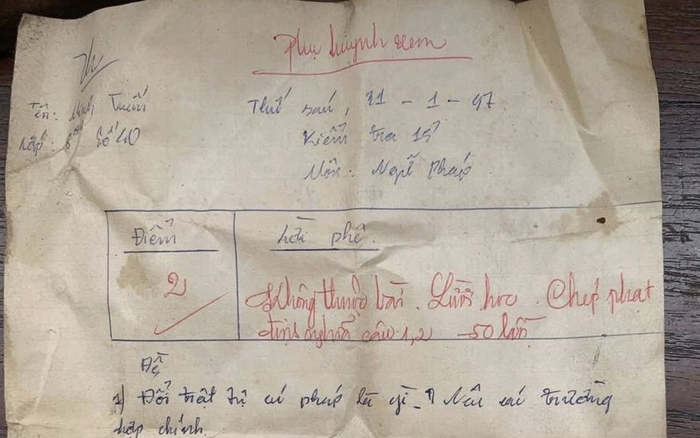 Phụ huynh xem
Tên: Minh Tuấn
Thứ sáu, 31 - 1 - 97
Lớp: Số 40
Kiểm tra 15'
Môn: Ngữ Pháp
Điểm
Lời phê.
2
Không thuộc bài. Lười học. Chép phạt
định nghĩa câu 1, 2 50 lần
Đề
1) Đổi trật tự cú pháp là gì? Nêu các trường
hợp chính.